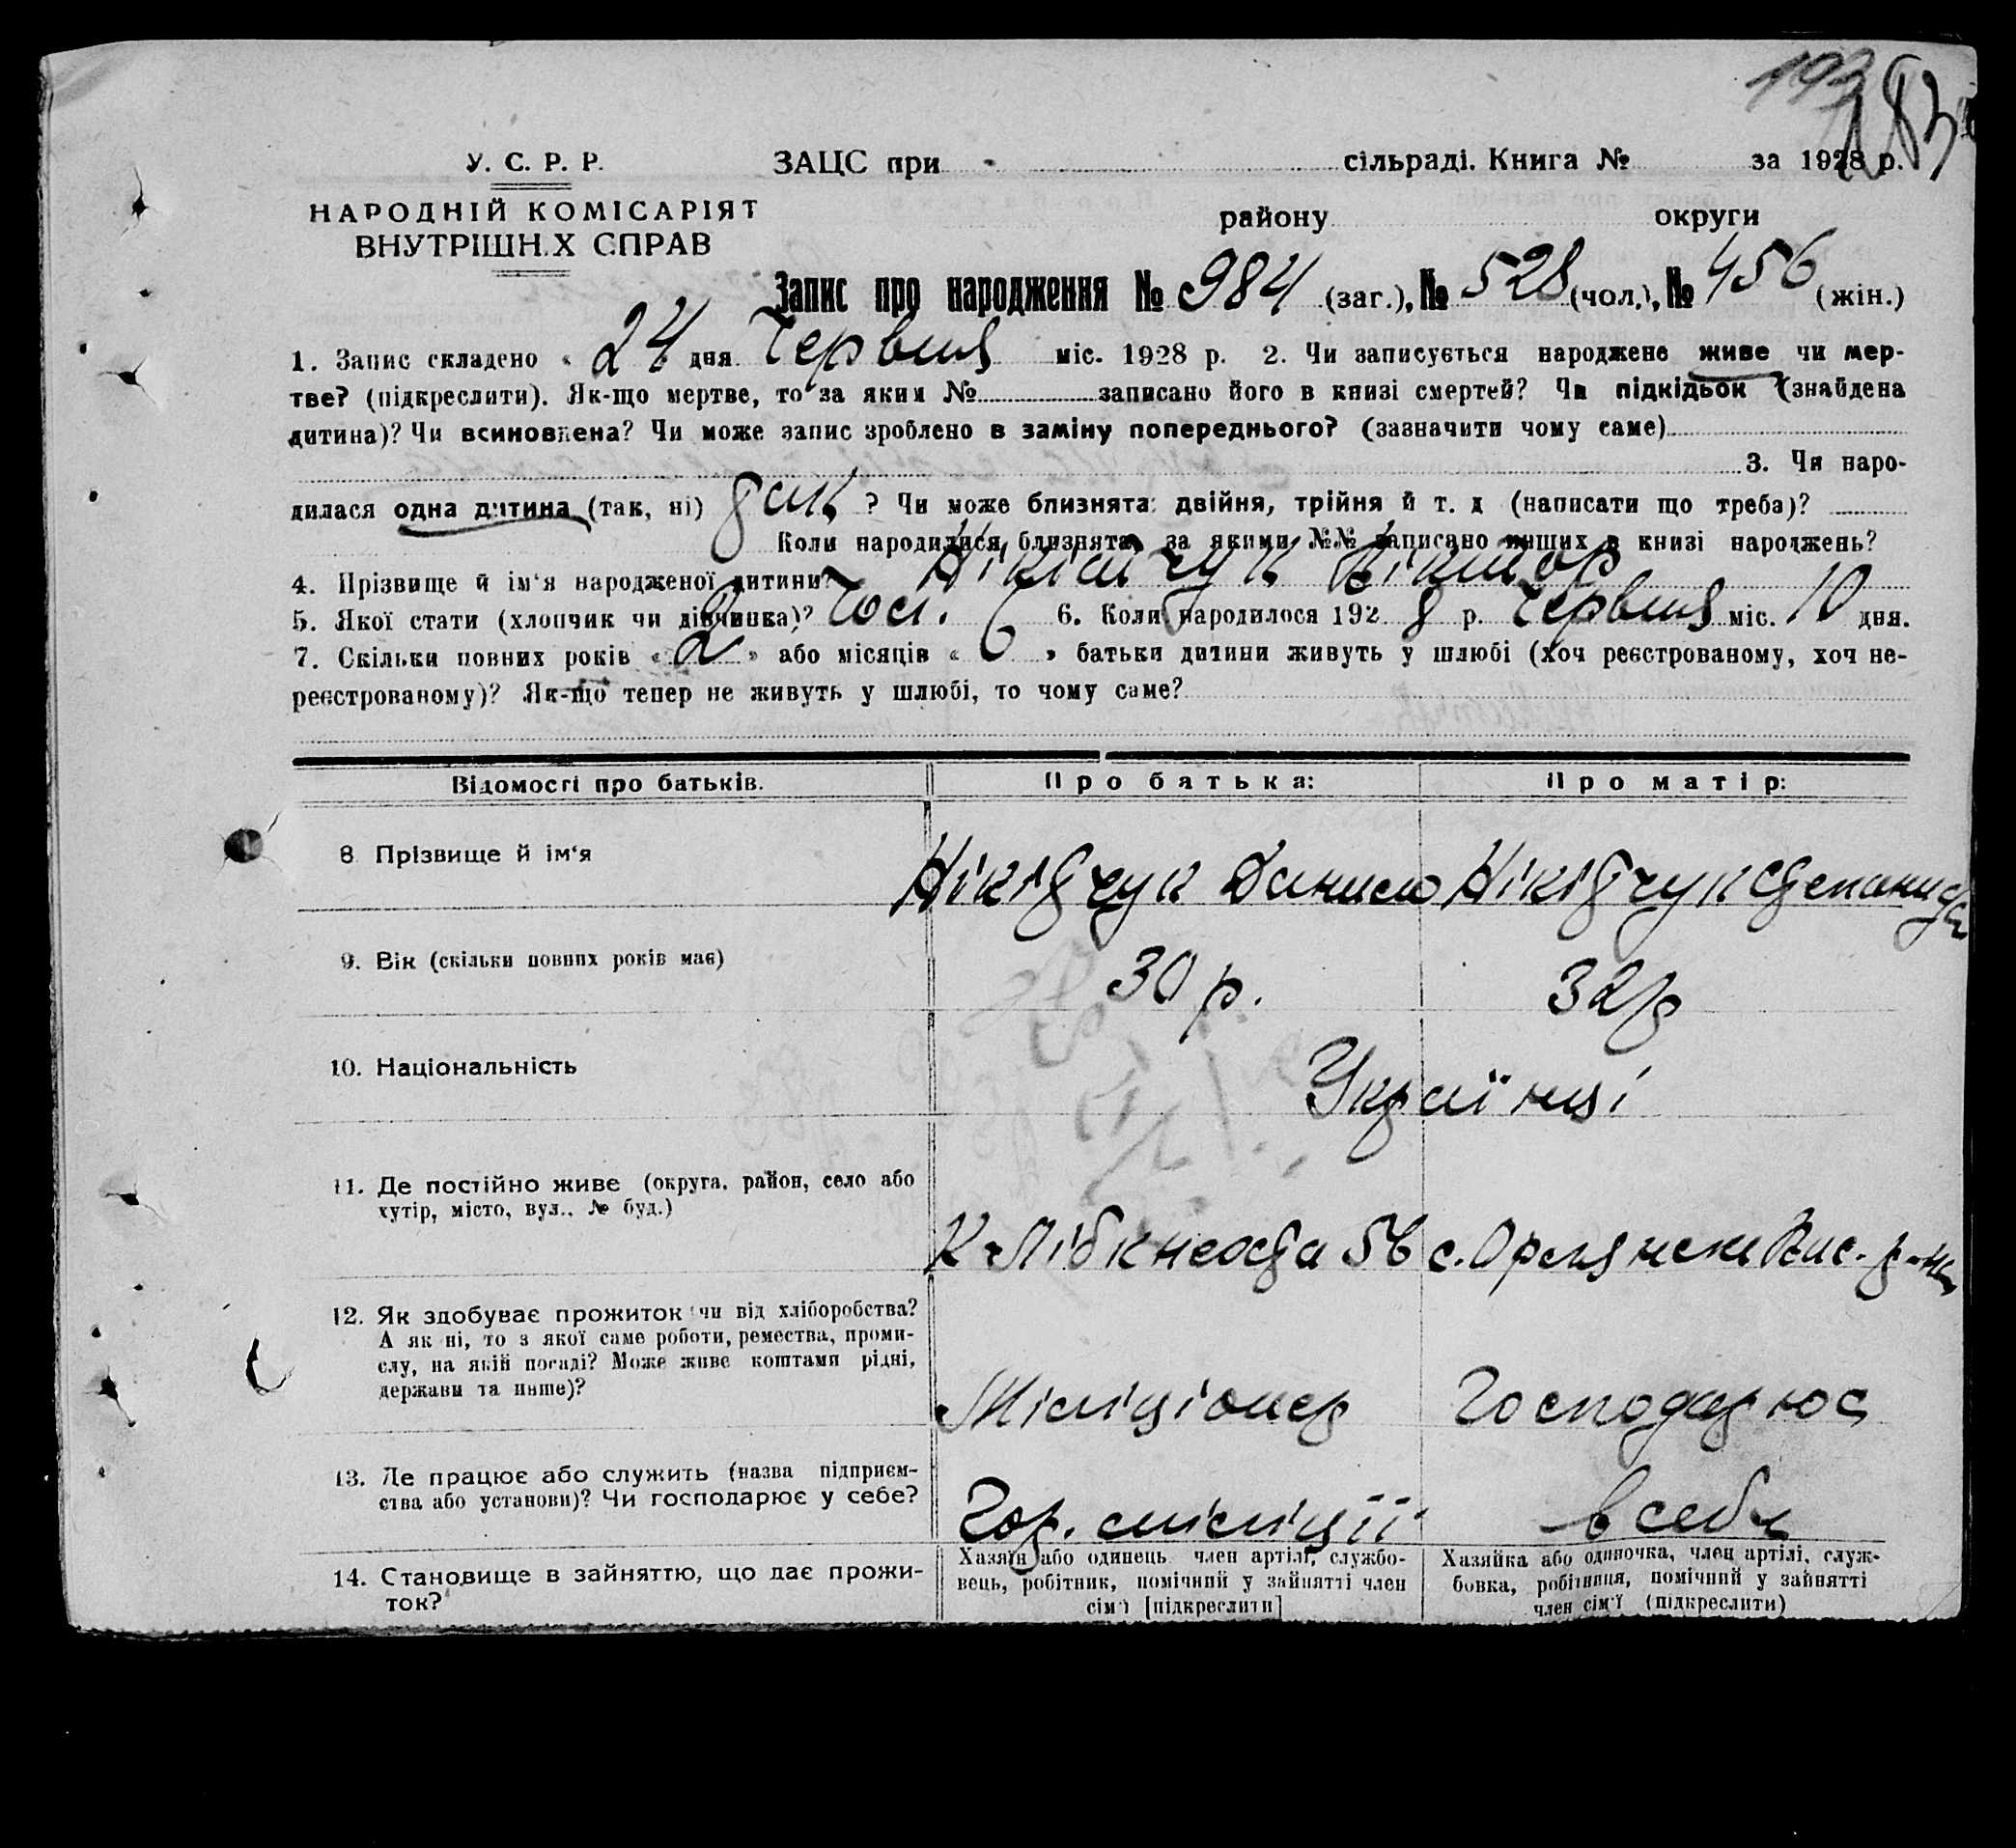 193
183
У. С. Р. Р.
ЗАЦС при сільраді. Книга № за 1928 р.
НАРОДНІЙ КОМІСАРІЯТ
ВНУТРІШН.Х СПРАВ
району округи
Запис про народження № 984 (заг.), № 528 (чол.), № 456 (жін.)
1. Запис складено « 24 дня Червня міс. 1928 р. 2. Чи записується народжене живе чи мер-
тве? (підкреслити). Як-що мертве, то за яким № записано його в книзі смертей? Чи підкідьок (знайдена
дитина)? Чи всиновлена? Чи може запис зроблено в заміну попереднього? (зазначити чому саме)
3. Чи наро-
дилася одна дитина (так, ні) так ? Чи може близнята: двійня, трійня й т. д (написати що треба)?
Коли народилися близнята, за якими №№ записано инших в книзі народжень?
4. Прізвище й ім'я народженої дитини? Нікітчук Віктор
5. Якої стати (хлопчик чи дівчинка)? Чол. 6. Коли народилося 192 8 р. Червня міс. 10 дня.
7. Скільки повних років « 2 » або місяців « 6 » батьки дитини живуть у шлюбі (хоч реєстрованому, хоч не-
реєстрованому)? Як-що тепер не живуть у шлюбі, то чому саме?
Відомості про батьків. Про батька: Про матір:
8 Прізвище й ім'я Нікітчук Данило Нікітчук Степанида
9. Вік (скільки повних років має) 30 р. 32 р
10. Національність Українці
11. Де постійно живе (округа, район, село або
хутір, місто, вул.. № буд.)
К Лібкнехта 56 с. Орлянске Вас. р-на
12. Як здобуває прожиток чи від хліборобства?
А як ні, то з якої саме роботи, ремества, проми-
слу, на якій посаді? Може живе коштами рідні,
держави та инше)?
Міліціонер Господарює
13. Де працює або служить (назва підприєм-
ства або установи)? Чи господарює у себе?
Гор. міліції в себе
14. Становище в зайняттю, що дає прожи-
ток?
Хазяїн або одинець член артілі, службо-
вець, робітник, помічний у зайнятті член
сім'ї [підкреслити]
Хазяйка або одиночка, член артілі, служ-
бовка, робітниця, помічний у зайнятті
член сім'ї (підкреслити)